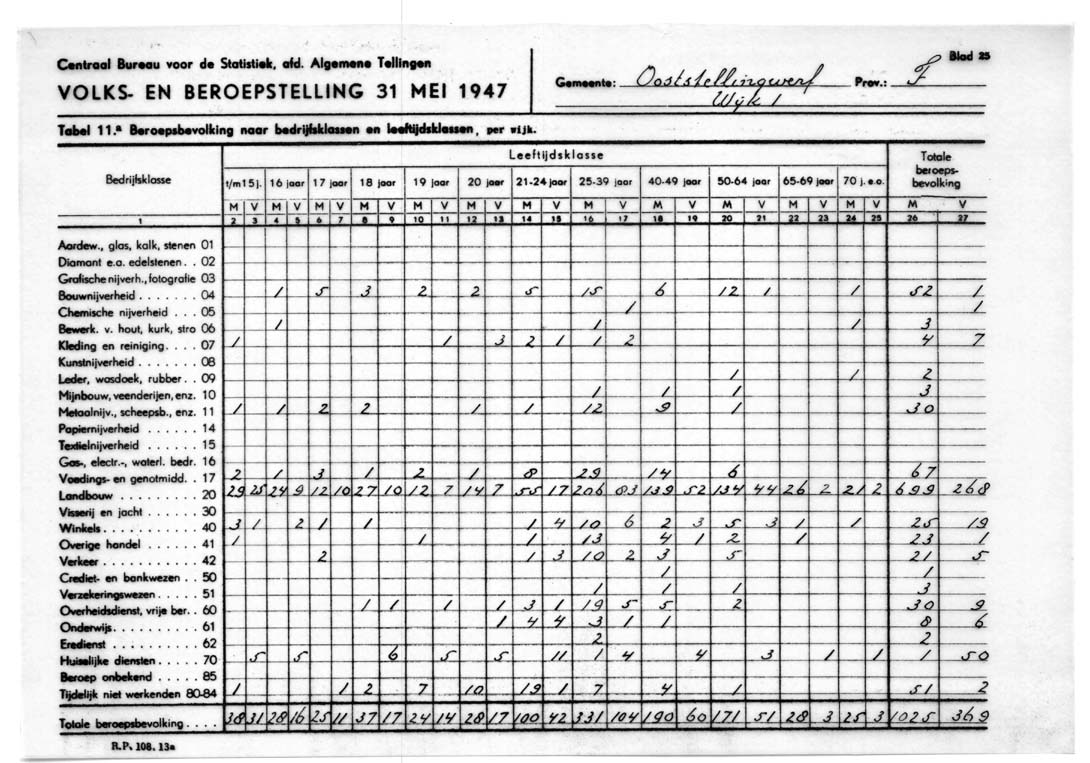 Centraal Bureau voor de Statistiek, afd. Algemene Tellingen
VOLKS- EN BEROEPSTELLING 31 MEI 1947
Gemeente: Ooststellingwerf Prov.: F
Wijk 1
Blad 25
Tabel 11.a Beroepsbevolking naar bedrijfsklassen en leeftijdsklassen, per wijk.
Bedrijfsklasse Leeftijdsklasse Totale beroeps-bevolking
t/m 15 j. 16 jaar 17 jaar 18 jaar 19 jaar 20 jaar 21-24 jaar 25-39 jaar 40-49 jaar 50-64 jaar 65-69 jaar 70 j. e.o.
M V M V M V M V M V M V M V M V M V M V M V M V M V
1 2 3 4 5 6 7 8 9 10 11 12 13 14 15 16 17 18 19 20 21 22 23 24 25 26 27
Aardew., glas, kalk, stenen 01
Diamant e.a. edelstenen . . 02
Grafische nijverh., fotografie 03
Bouwnijverheid . . . . . . . 04 1 5 3 2 2 5 15 6 12 1 1 52 1
Chemische nijverheid . . . 05 1 1
Bewerk. v. hout, kurk, stro 06 1 1 1 3
Kleding en reiniging. . . . 07 1 1 3 2 1 1 2 4 7
Kunstnijverheid . . . . . . . 08
Leder, wasdoek, rubber . . 09 1 1 2
Mijnbouw, veenderijen, enz. 10 1 1 1 3
Metaalnijv., scheepsb., enz. 11 1 1 2 2 1 1 12 9 1 30
Papiernijverheid . . . . . . 14
Textielnijverheid . . . . . . 15
Gas-, electr.-, waterl. bedr. 16
Voedings- en genotmidd. . 17 2 1 3 1 2 1 8 29 14 6 67
Landbouw . . . . . . . . . 20 29 25 24 9 12 10 27 10 12 7 14 7 55 17 206 83 139 52 134 44 26 2 21 2 699 268
Visserij en jacht . . . . . . 30
Winkels. . . . . . . . . . . 40 3 1 2 1 1 1 4 10 6 2 3 5 3 1 1 25 19
Overige handel . . . . . . 41 1 1 1 13 4 1 2 1 23 1
Verkeer . . . . . . . . . . . 42 2 1 3 10 2 3 5 21 5
Crediet- en bankwezen . . 50 1 1
Verzekeringswezen . . . . . 51 1 1 1 3
Overheidsdienst, vrije ber. . 60 1 1 1 1 3 1 19 5 5 2 30 9
Onderwijs. . . . . . . . . . 61 1 4 4 3 1 1 8 6
Eredienst . . . . . . . . . . 62 2 2
Huiselijke diensten . . . . . 70 5 5 6 5 5 11 1 4 4 3 1 1 1 50
Beroep onbekend . . . . . 85
Tijdelijk niet werkenden 80-84 1 1 2 7 10 19 1 7 4 1 51 2
Totale beroepsbevolking . . . . 38 31 28 16 25 11 37 17 24 14 28 17 100 42 331 104 190 60 171 51 28 3 25 3 1025 369
R.P. 108. 13a